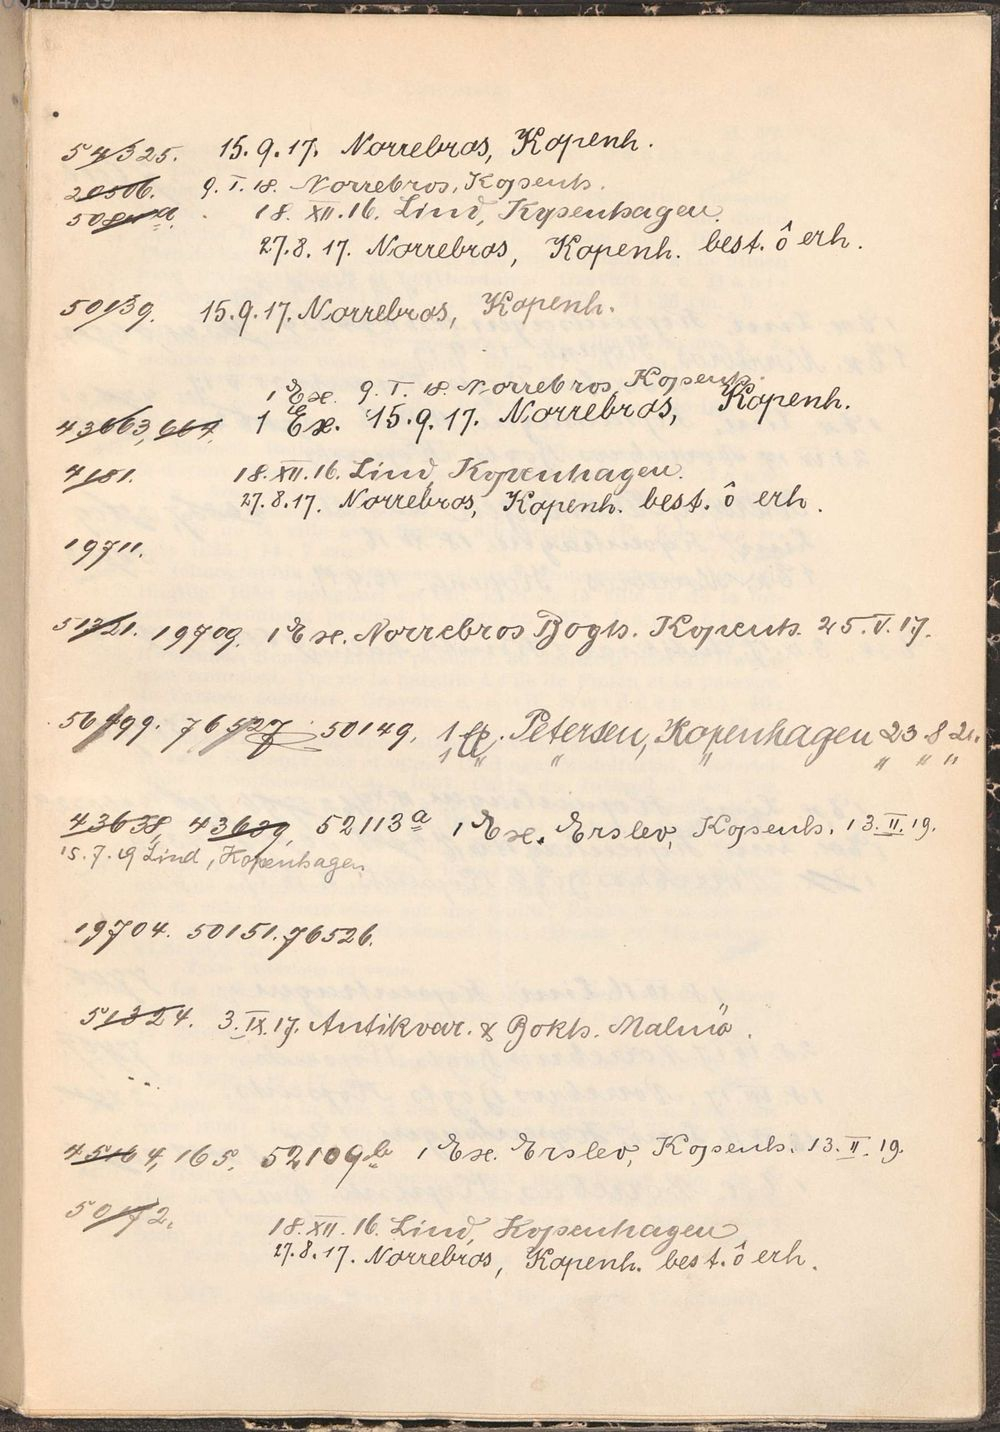 54325. 15.9.17. Norrebros, Kopenh.
20506. 9.I.18. Norrebros, Kopenh.
18.XII.16. Lind, Kopenhagen.
27.8.17. Norrebros, Kopenh. best. ô erh.
50139. 15.9.17. Norrebros, Kopenh.
1 Ex. 9.I.18. Norrebros, Kopenh.
43663, 664, 1 Ex. 15.9.17. Norrebros, Kopenh.
4181. 18.XII.16. Lind, Kopenhagen.
27.8.17. Norrebros, Kopenh. best. ô erh.
19711.
51321. 19709. 1 Ex. Norrebros Bogh. Kopenh. 25.V.17.
50499. 76527 50149. Petersen, Kopenhagen 23.8.21.
" " " " " "
43638, 43639, 52113a 1 Ex. Erslev, Kopenh. 13.II.19.
15.7.19 Lind, Kopenhagen
19704. 50151. 76526.
51324. 3.IX.17. Antikvar. & Bokh. Malmö.
45164, 165. 52109b 1 Ex. Erslev, Kopenh. 13.II.19.
50172. 18.XII.16. Lind, Kopenhagen
27.8.17. Norrebros, Kopenh. best. ô erh.